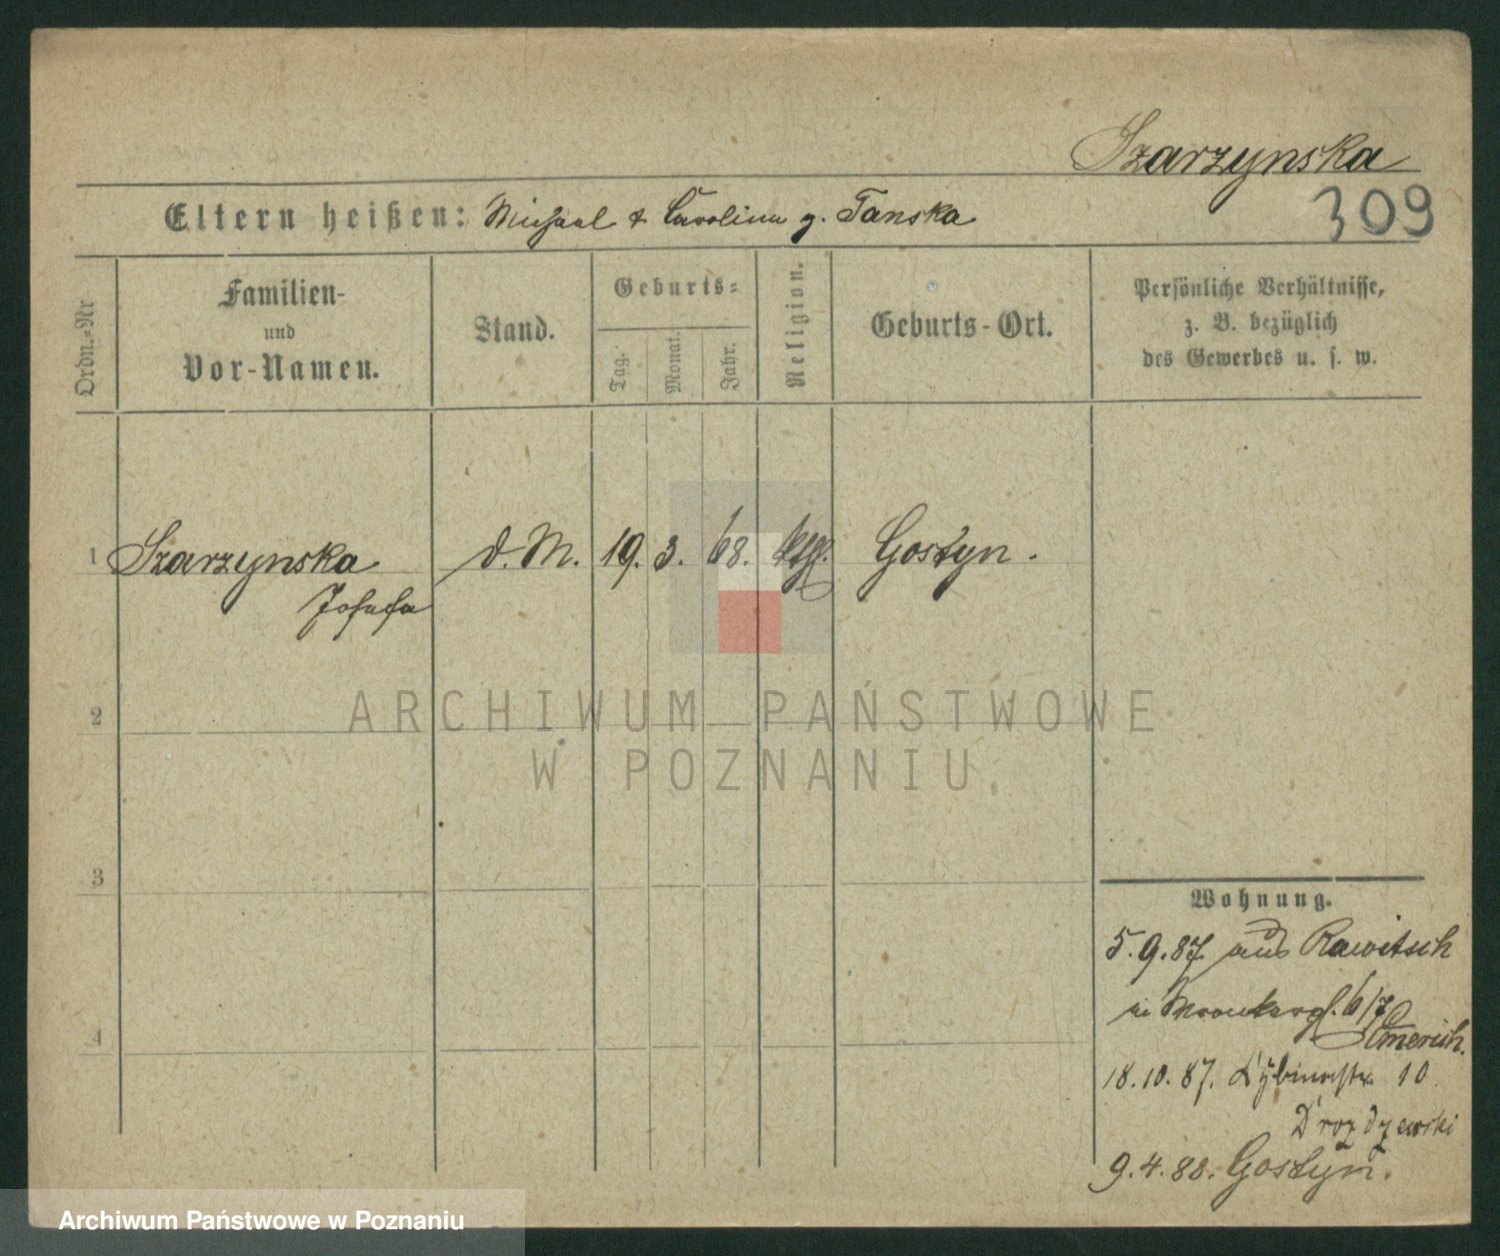 Szarzynska
309
Eltern heißen: Michael & Carolina g. Tanska
Ordn.-Nr
Familien-
und
Vor-Namen.
Stand.
Geburts-
Tag.
Monat.
Jahr.
Religion.
Geburts-Ort.
Persönliche Verhältnisse,
z. B. bezüglich
des Gewerbes u. s. w.
1 Szarzynska d. M. 19. 3. 68. Gostyn.
Josefa
2
ARCHIWUM PAŃSTWOWE
W POZNANIU
3
Wohnung.
5.9.87 aus Rawitsch
in 6/7
Emerich.
4
18.10.87. 10
Drozdzewski
9.4.88. Gostyn.
Archiwum Państwowe w Poznaniu